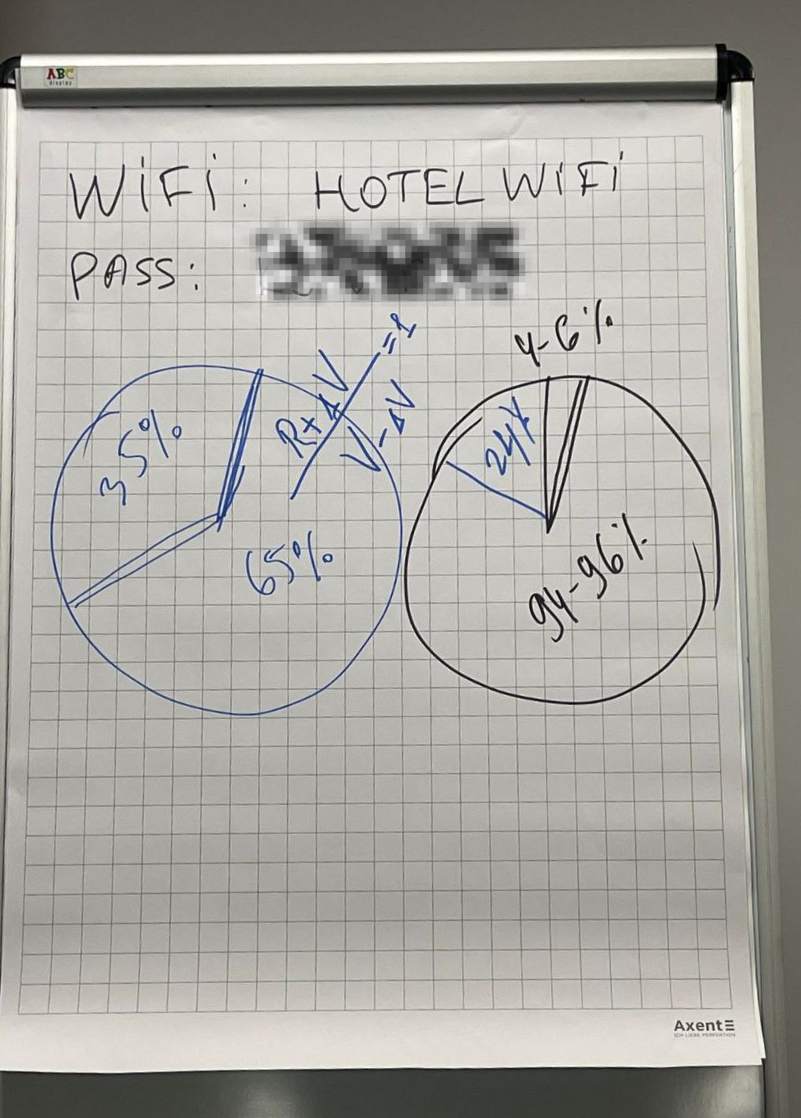 ABC
display
WiFi: HOTEL WiFi
PASS:
4-6%
35%
R+ΔV
V-ΔV
=1
24%
65%
94-96%
Axent
ICH LIEBE PERFEKTION